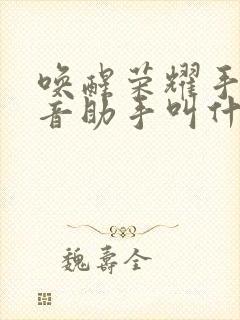 唤醒荣耀手
音助手叫什
魏寿全